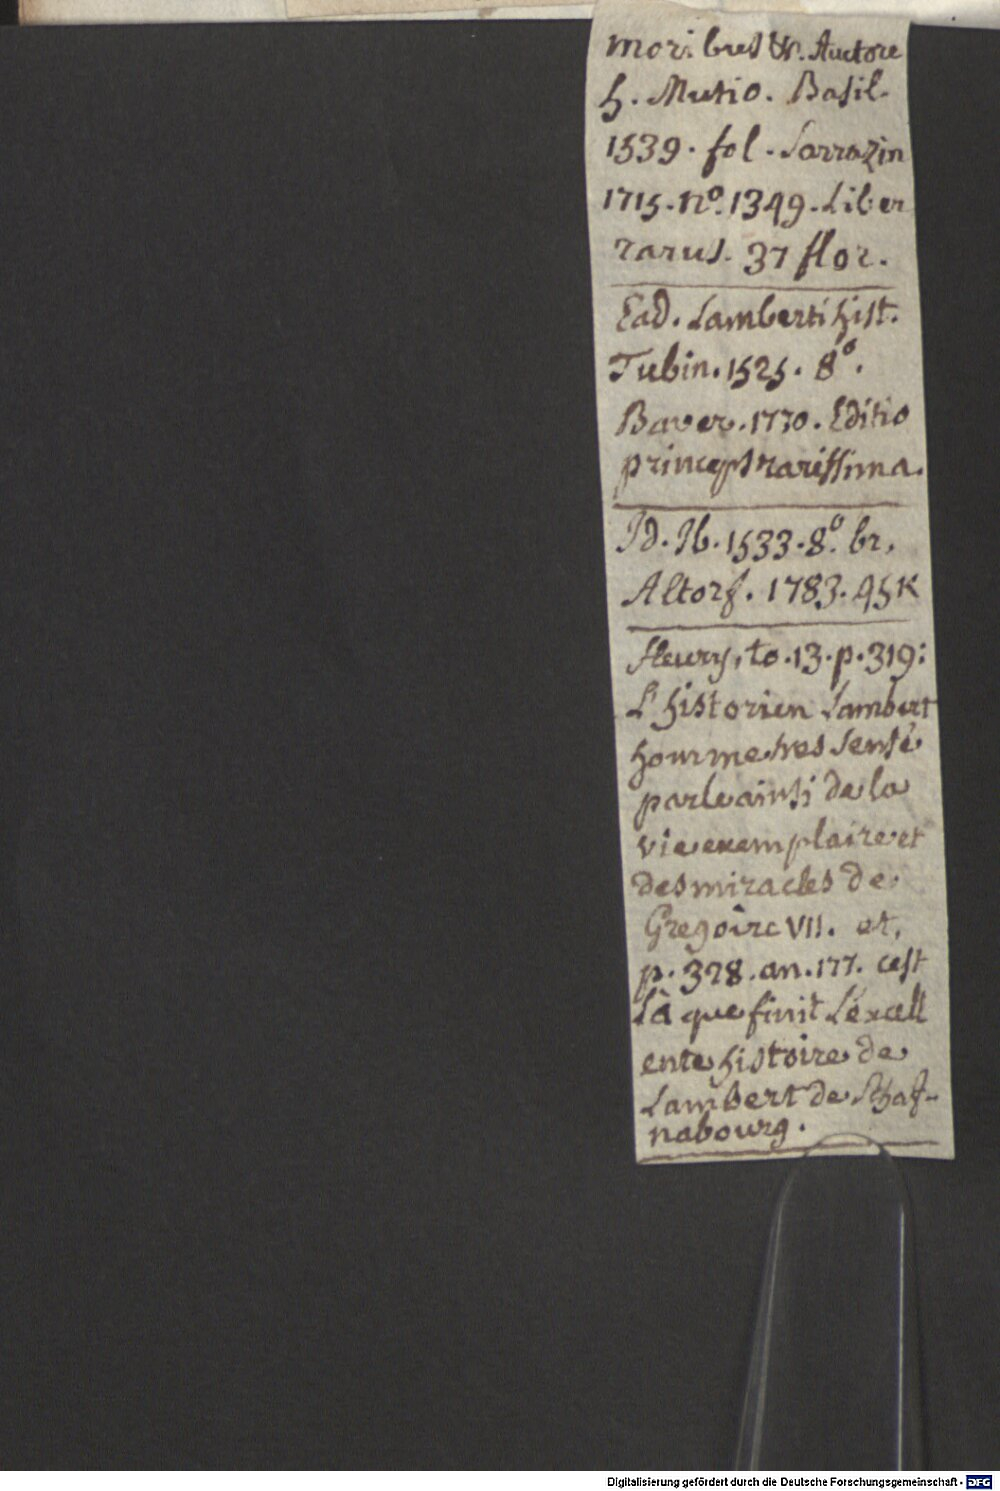 moribus &c. Auctore
H. Mutio. Basil.
1539. fol. Sarrazin
1715. n.º 1349. Liber
rarus. 37 flor.
Ead. Lamberti hist.
Tubin. 1525. 8º.
Bauer. 1770. Editio
princeps rarissima.
Id. Ib. 1533. 8º. br.
Altorf. 1783. 45 K
fleury, to. 13. p. 319:
L'historien Lambert
homme tres sensé
parle ainsi de la
vie exemplaire et
des miracles de
Gregoire VII. et,
p. 328. an. 177. cest
là que finit L'excell
ente histoire de
Lambert de Schaf-
nabourg.
Digitalisierung gefördert durch die Deutsche Forschungsgemeinschaft - DFG